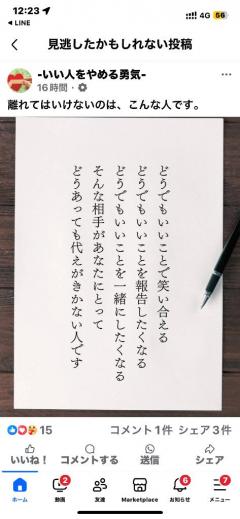 12:23
4G 56
LINE
見逃したかもしれない投稿
-いい人をやめる勇気-
16時間
離れてはいけないのは、こんな人です。
どうでもいいことで笑い合える
どうでもいいことを報告したくなる
どうでもいいことを一緒にしたくなる
そんな相手があなたにとって
どうあっても代えがきかない人です
15
コメント1件 シェア3件
いいね！
コメントする
送信
シェア
ホーム
2
動画
友達
Marketplace
6
お知らせ
7
メニュー